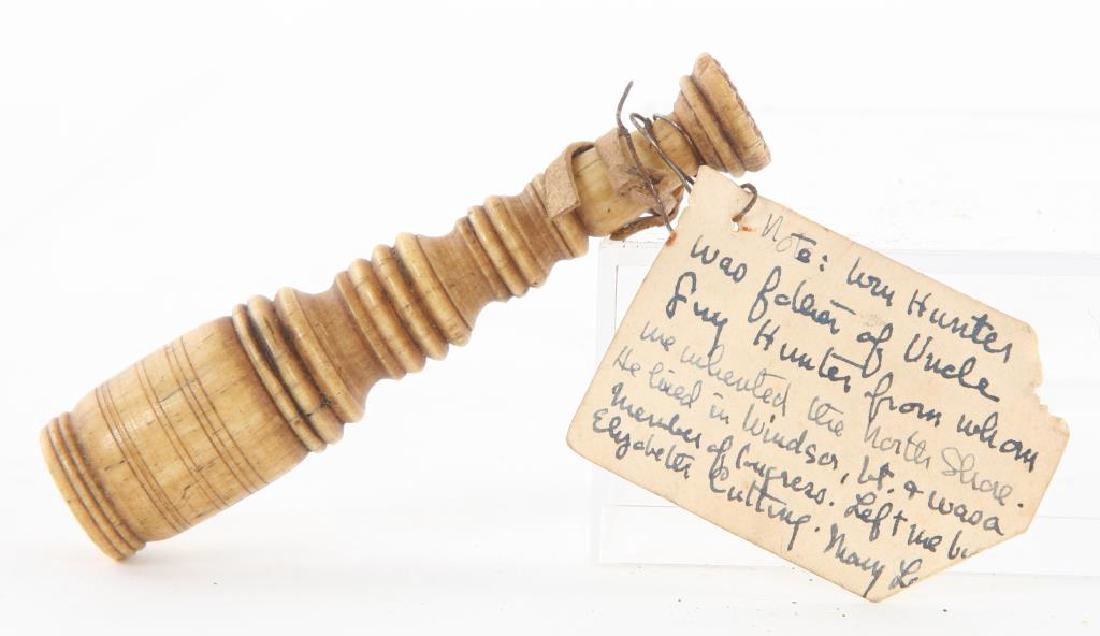 Note: Wm Hunter
was father of Uncle
Guy Hunter from whom
we inherited the North Shore.
He lived in Windsor, Vt. & was a
member of Congress. Left me by
Elizabeth Cutting. Mary L